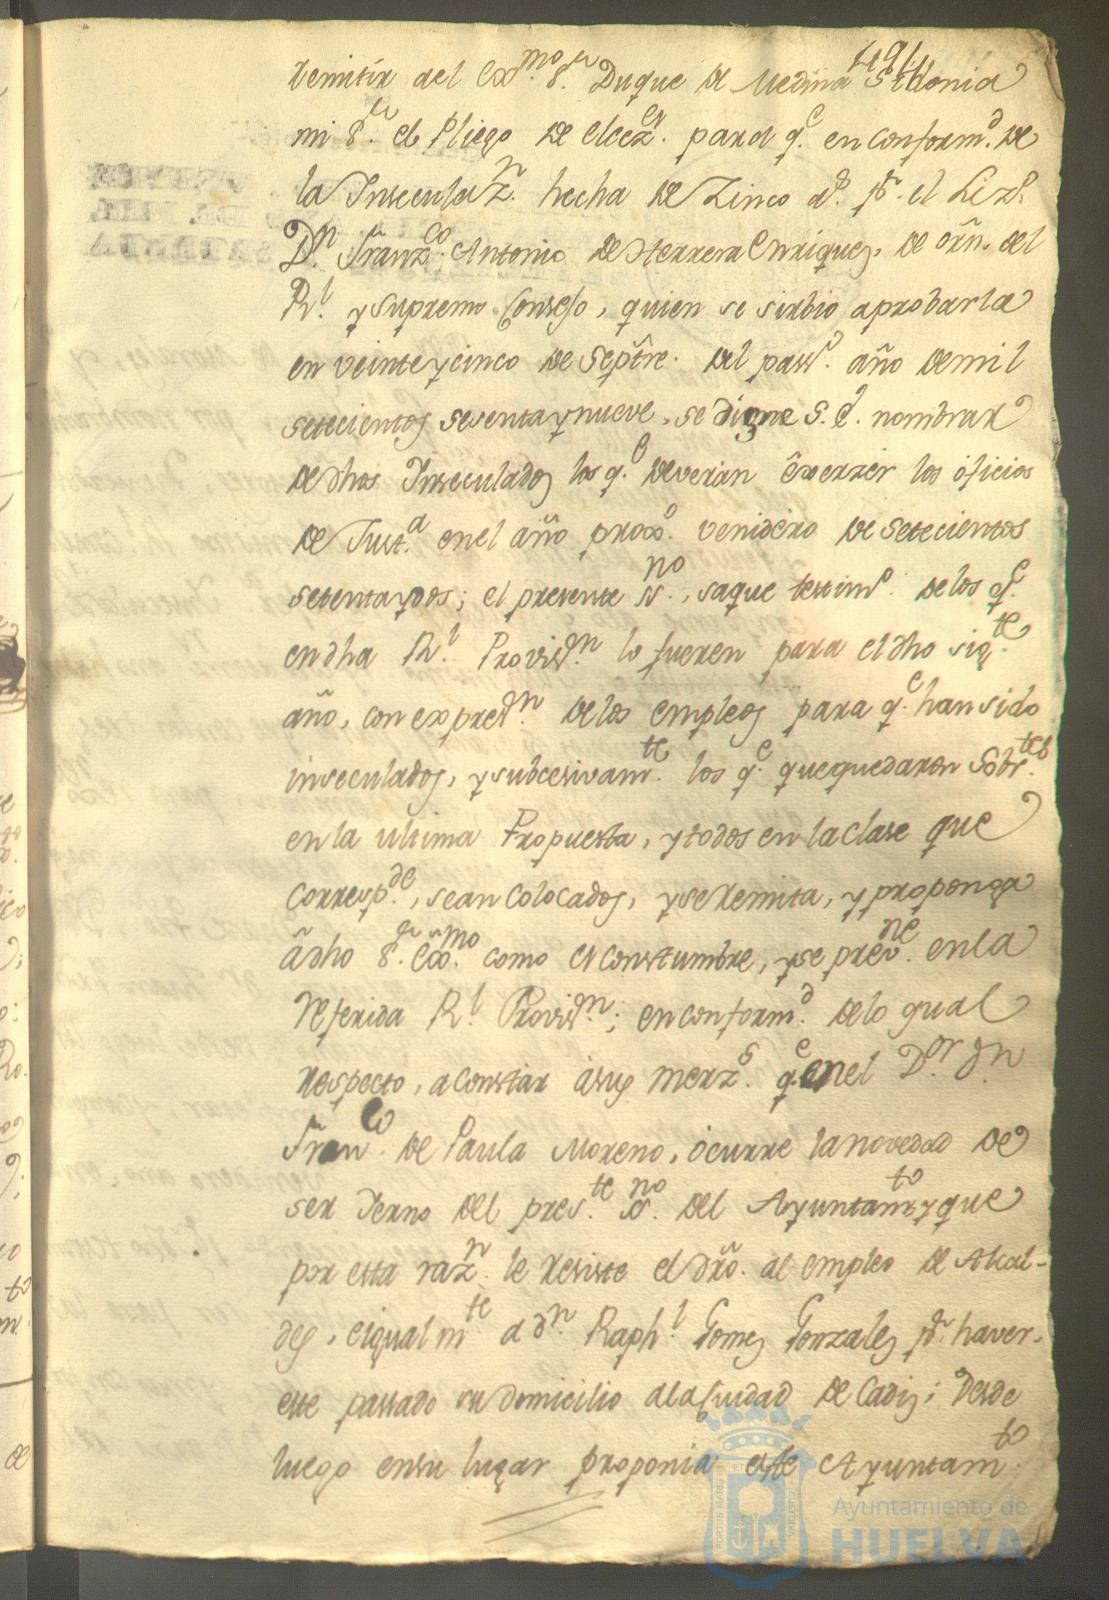 remitir al Exᵐᵒ. Sʳ. Duque de Medina Sidonia
mi Sʳ. el Pliego de Eleczᵉⁿ. para qᵉ. en conformᵈ. de
la Inseculazⁿ. hecha de Zinco aˢ. pʳ. el Lizᵈᵒ.
Dⁿ. Franzᶜᵒ. Antonio de Herrera Enriquez, de orñ. del
Rˡ. y Supremo Consejo, quien se sirbio aprobarla
en veinte y cinco de Septre. del passᵒ. año de mil
setecientos sesenta y nueve, se digne S. Eª. nombrar
de dhos Inseculados los qᵉ. deveran exerzer los oficios
de Justª. en el año proxᵒ. venidero de setecientos
setenta y dos; el presente ssⁿᵒ., saque testimᵒ. de los qᵉ.
en dha Rˡ. Provisⁿ. lo fueren para el dho sigᵗᵉ.
año, con expresⁿ. de los empleos para qᵉ. han sido
inseculados, y subcesivamᵗᵉ. los qᵉ. que quedaron Sobrᵗᵉˢ.
en la ultima Propuesta, y todos en la clase que
correspᵈᵉ., sean colocados, y se remita, y proponga
â dho Sʳ. Exmᵒ. como es constumbre, y se prevⁿᵉ. en la
referida Rˡ. Provisⁿ.; en conformᵈ. de lo qual
respecto, a constar â sus merzˢ. qᵉ. en el Dᵒʳ. Dⁿ.
Franᶜᵒ. de Paula Moreno, ocurre la novedad de
ser Yerno del presᵗᵉ. ssⁿᵒ. del Ayuntamᵗᵒ. y que
por esta razⁿ. le resiste el dro. al empleo de Alcal-
des, e igualmᵗᵉ. a dⁿ. Raphˡ. Gomez Gonzalez pʳ. haver-
este passado su domicilio a la Ciudad de Cadiz; desde
luego en su lugar proponia este Ayuntamᵗᵒ.
Ayuntamiento de
HUELVA